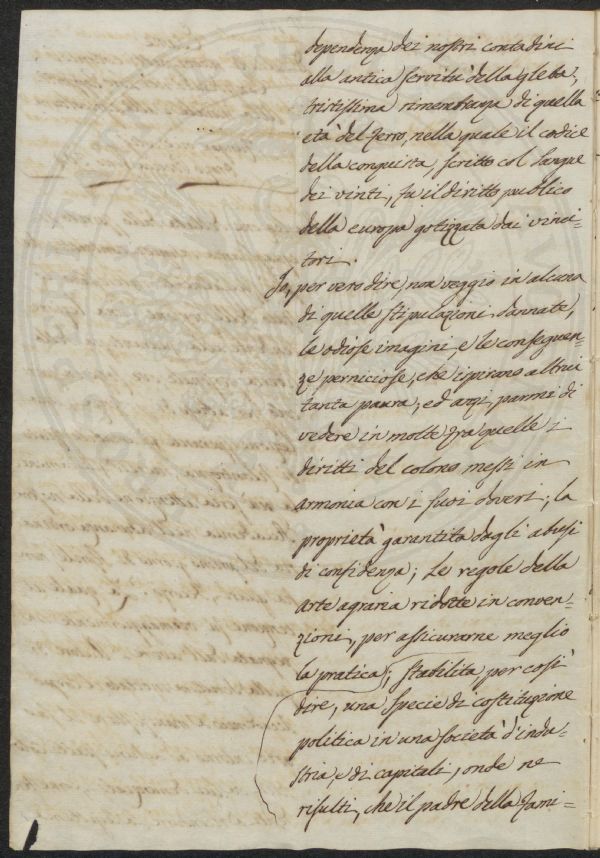 dependenza dei nostri contadini
alla antica servitù della gleba,
tristissima rimembranza di quella
età del ferro, nella quale il codice
della conquista, scritto col sangue
dei vinti, fu il diritto publico
della europa gotizzata dai vinci-
tori.
Io, per vero dire, non veggio in alcuna
di quelle stipulazioni dannate,
le odiose imagini, e le conseguen-
ze perniciose, che ispirono altrui
tanta paura; ed anzi parmi di
vedere in molte fra quelle i
diritti del colono messi in
armonia con i suoi doveri; la
proprietà garantita dagli abusi
di confidenza; Le regole della
arte agraria ridotte in conven-
zioni, per assicurarne meglio
la pratica; stabilita, per così
dire, una specie di costituzione
politica in una società d'indu-
stria, e di capitali, onde ne
risulti, che il padre della fami-